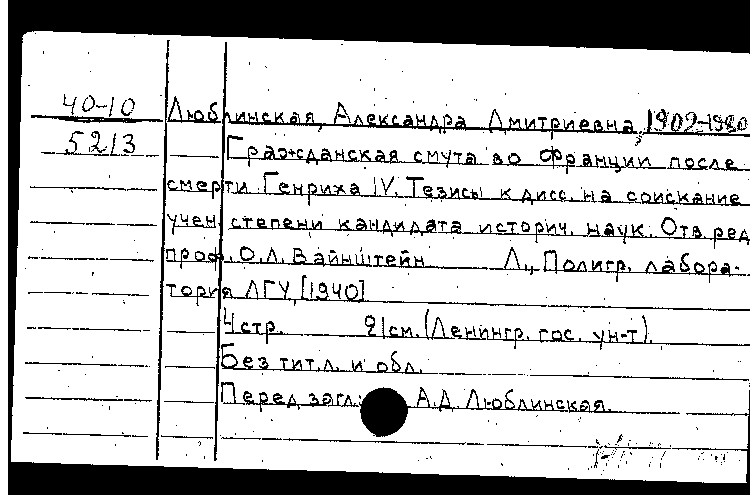 40-10 Люблинская, Александра Дмитриевна, 1902-1980
5213 Гражданская смута во Франции после
смерти Генриха IV. Тезисы к дисс. на соискание
учен. степени кандидата историч. наук. Отв. ред.
проф. О.Л. Вайнштейн Л., Полигр. лабора-
тория ЛГУ, [1940]
4 стр. 21 см. (Ленингр. гос. ун-т).
Без тит. л. и обл.
Перед загл.: А.Д. Люблинская.